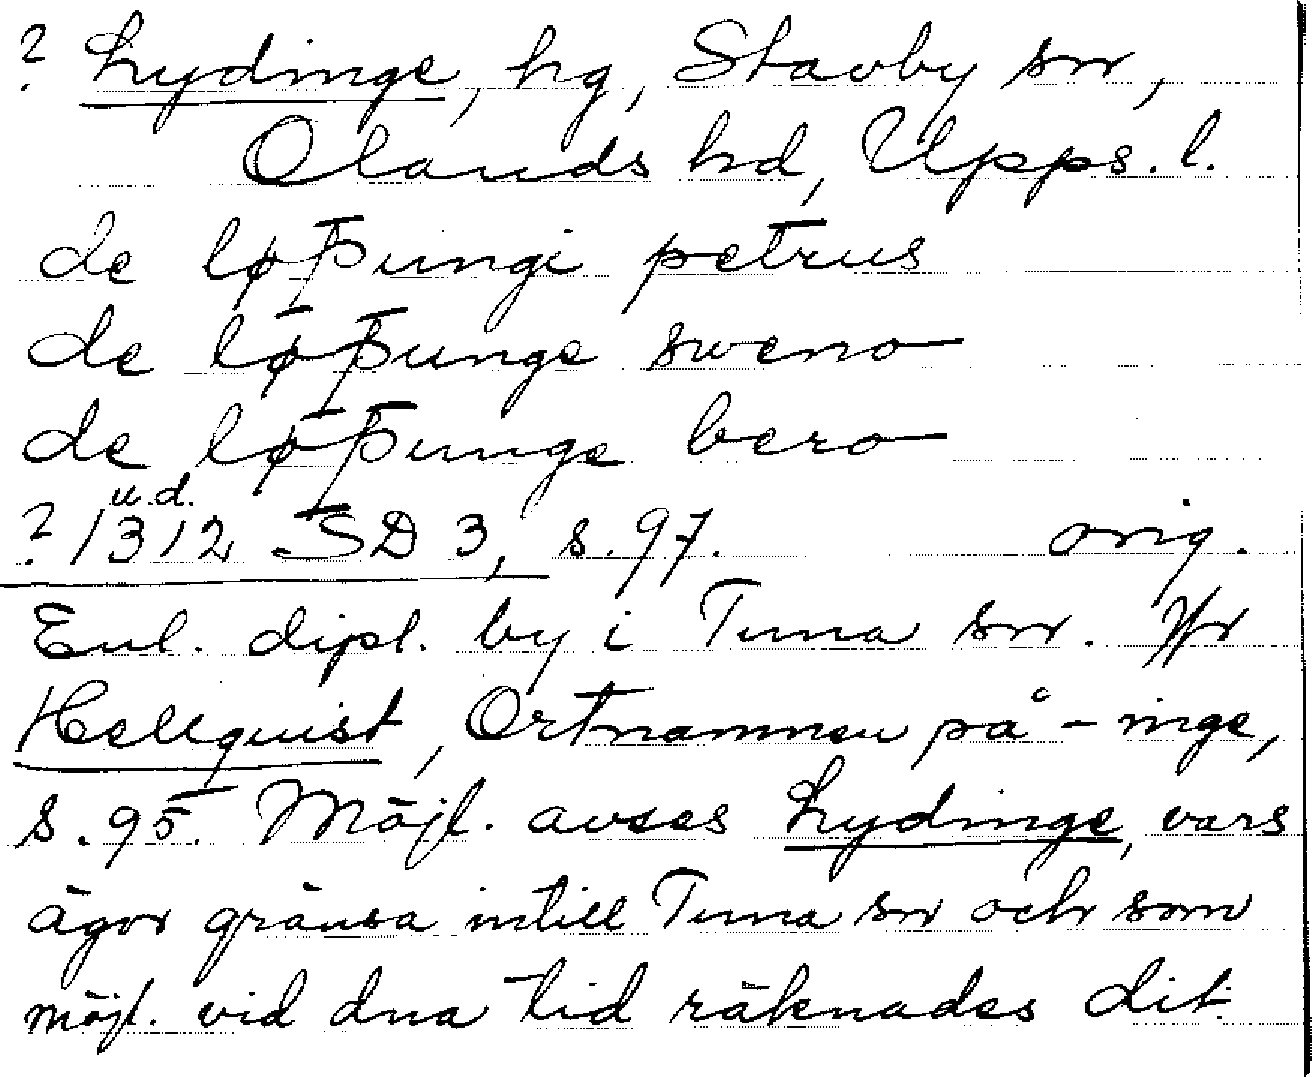 ? Lydinge, hg, Stavby sn,
Olands hd, Upps. l.
de løþungi petrus
de løþunge sweno
de løþunge bero
u.d.
? 1312 SD 3, s. 97. orig.
Enl. dipl. by i Tuna sn. Jfr
Hellquist, Ortnamnen på -inge,
s. 95. Möjl. avses Lydinge, vars
ägor gränsa intill Tuna sn och som
möjl. vid dna tid räknades dit.